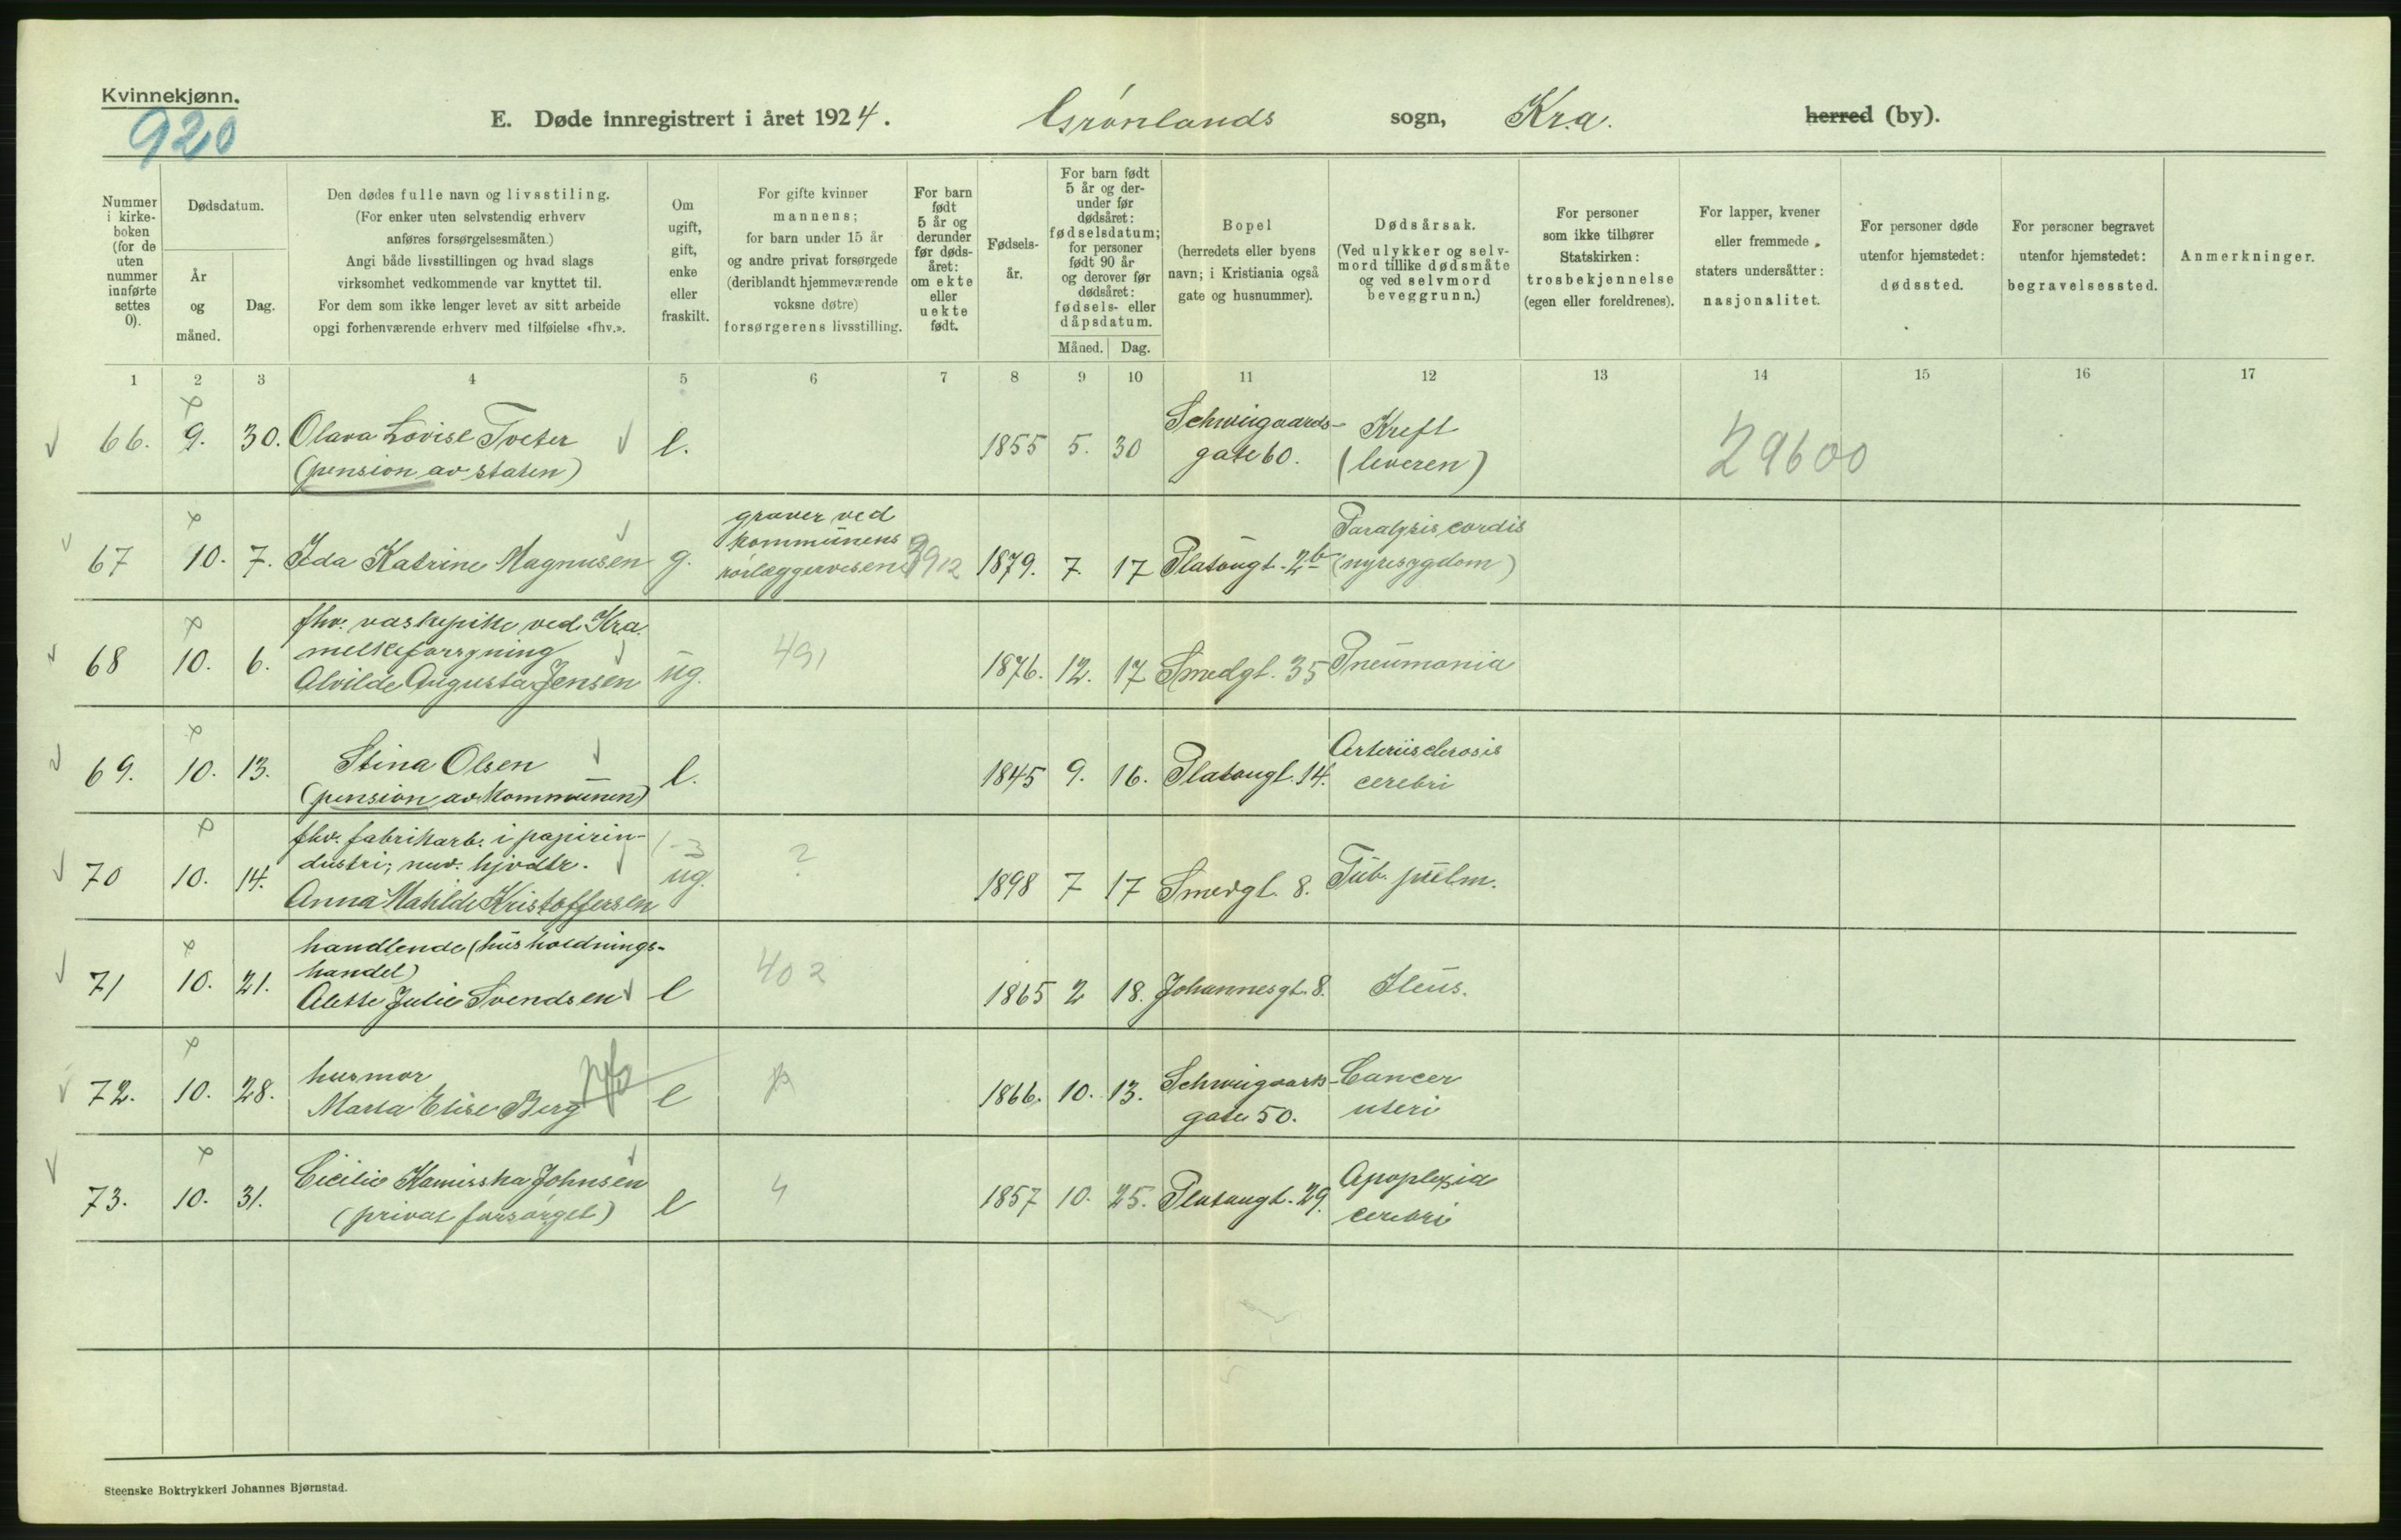 Kvinnekjønn.
920
E. Døde innregistrert i året 1924. Grønlands sogn, Kr.a. herred (by).
Nummer i kirke-boken (for de uten nummer innførte settes 0).
Dødsdatum.
År og måned.
Dag.
Den dødes fulle navn og livsstiling.
(For enker uten selvstendig erhverv
anføres forsørgelsesmåten.)
Angi både livsstillingen og hvad slags
virksomhet vedkommende var knyttet til.
For dem som ikke lenger levet av sitt arbeide
opgi forhenværende erhverv med tilføielse «fhv.».
Om
ugift,
gift,
enke
eller
fraskilt.
For gifte kvinner
mannens;
for barn under 15 år
og andre privat forsørgede
(deriblandt hjemmeværende
voksne døtre)
forsørgerens livsstilling.
For barn
født
5 år og
derunder
før døds-
året:
om ekte
eller
uekte
født.
Fødsels-
år.
For barn født
5 år og der-
under før
dødsåret:
fødselsdatum;
for personer
født 90 år
og derover før
dødsåret:
fødsels- eller
dåpsdatum.
Måned. Dag.
Bopel
(herredets eller byens
navn; i Kristiania også
gate og husnummer).
Dødsårsak.
(Ved ulykker og selv-
mord tillike dødsmåte
og ved selvmord
beveggrunn.)
For personer
som ikke tilhører
Statskirken:
trosbekjennelse
(egen eller foreldrenes).
For lapper, kvener
eller fremmede
staters undersåtter:
nasjonalitet.
For personer døde
utenfor hjemstedet:
dødssted.
For personer begravet
utenfor hjemstedet:
begravelsessted.
Anmerkninger.
1 2 3 4 5 6 7 8 9 10 11 12 13 14 15 16 17
66. 9. 30. Olava Lovise Tveter e. 1855 5. 30 Schweigaards- Kreft 29600
(pension av staten) gate 60. (leveren)
graver ved
kommunens
67 10. 7. Ida Katrine Magnusen g. rørlæggervesen 3912 1879. 7. 17 Platougt. 2b Paralysis cordis
(nyresygdom)
fhv. vaskepike ved Kr.a.
melkeforsyning
68 10. 6. Alvilde Augusta Jensen ug. 491 1876. 12. 17 Smedgt. 35 Pneumonia
69. 10. 13. Stina Olsen e. 1845 9. 16. Platougt. 14. Arteriisclerosis
(pension av kommunen) cerebri
fhv. fabrikarb. i papirin-
dustri; nuv. hjvdtr.
70 10. 14. Anna Mathilde Kristoffersen ug. ? 1898 7 17 Smedgt. 8. Tub. pulm.
handlende (husholdnings-
handel)
71 10. 21. Alette Julie Svendsen e 402 1865 2 18. Johannesgt. 8. Ileus.
husmor
72. 10. 28. Marta Elise Berg e 1866. 10. 13. Schweigaards- Cancer
gate 50. uteri
73. 10. 31. Cicilie Kamisska Johnsen e 4 1857 10. 25. Platougt. 29. Apoplexia
(privat forsørget) cerebri
Steenske Boktrykkeri Johannes Bjørnstad.